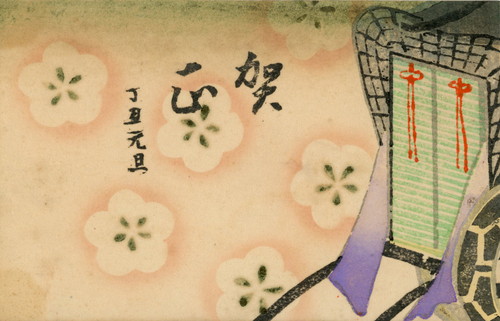 賀正
丁丑元旦